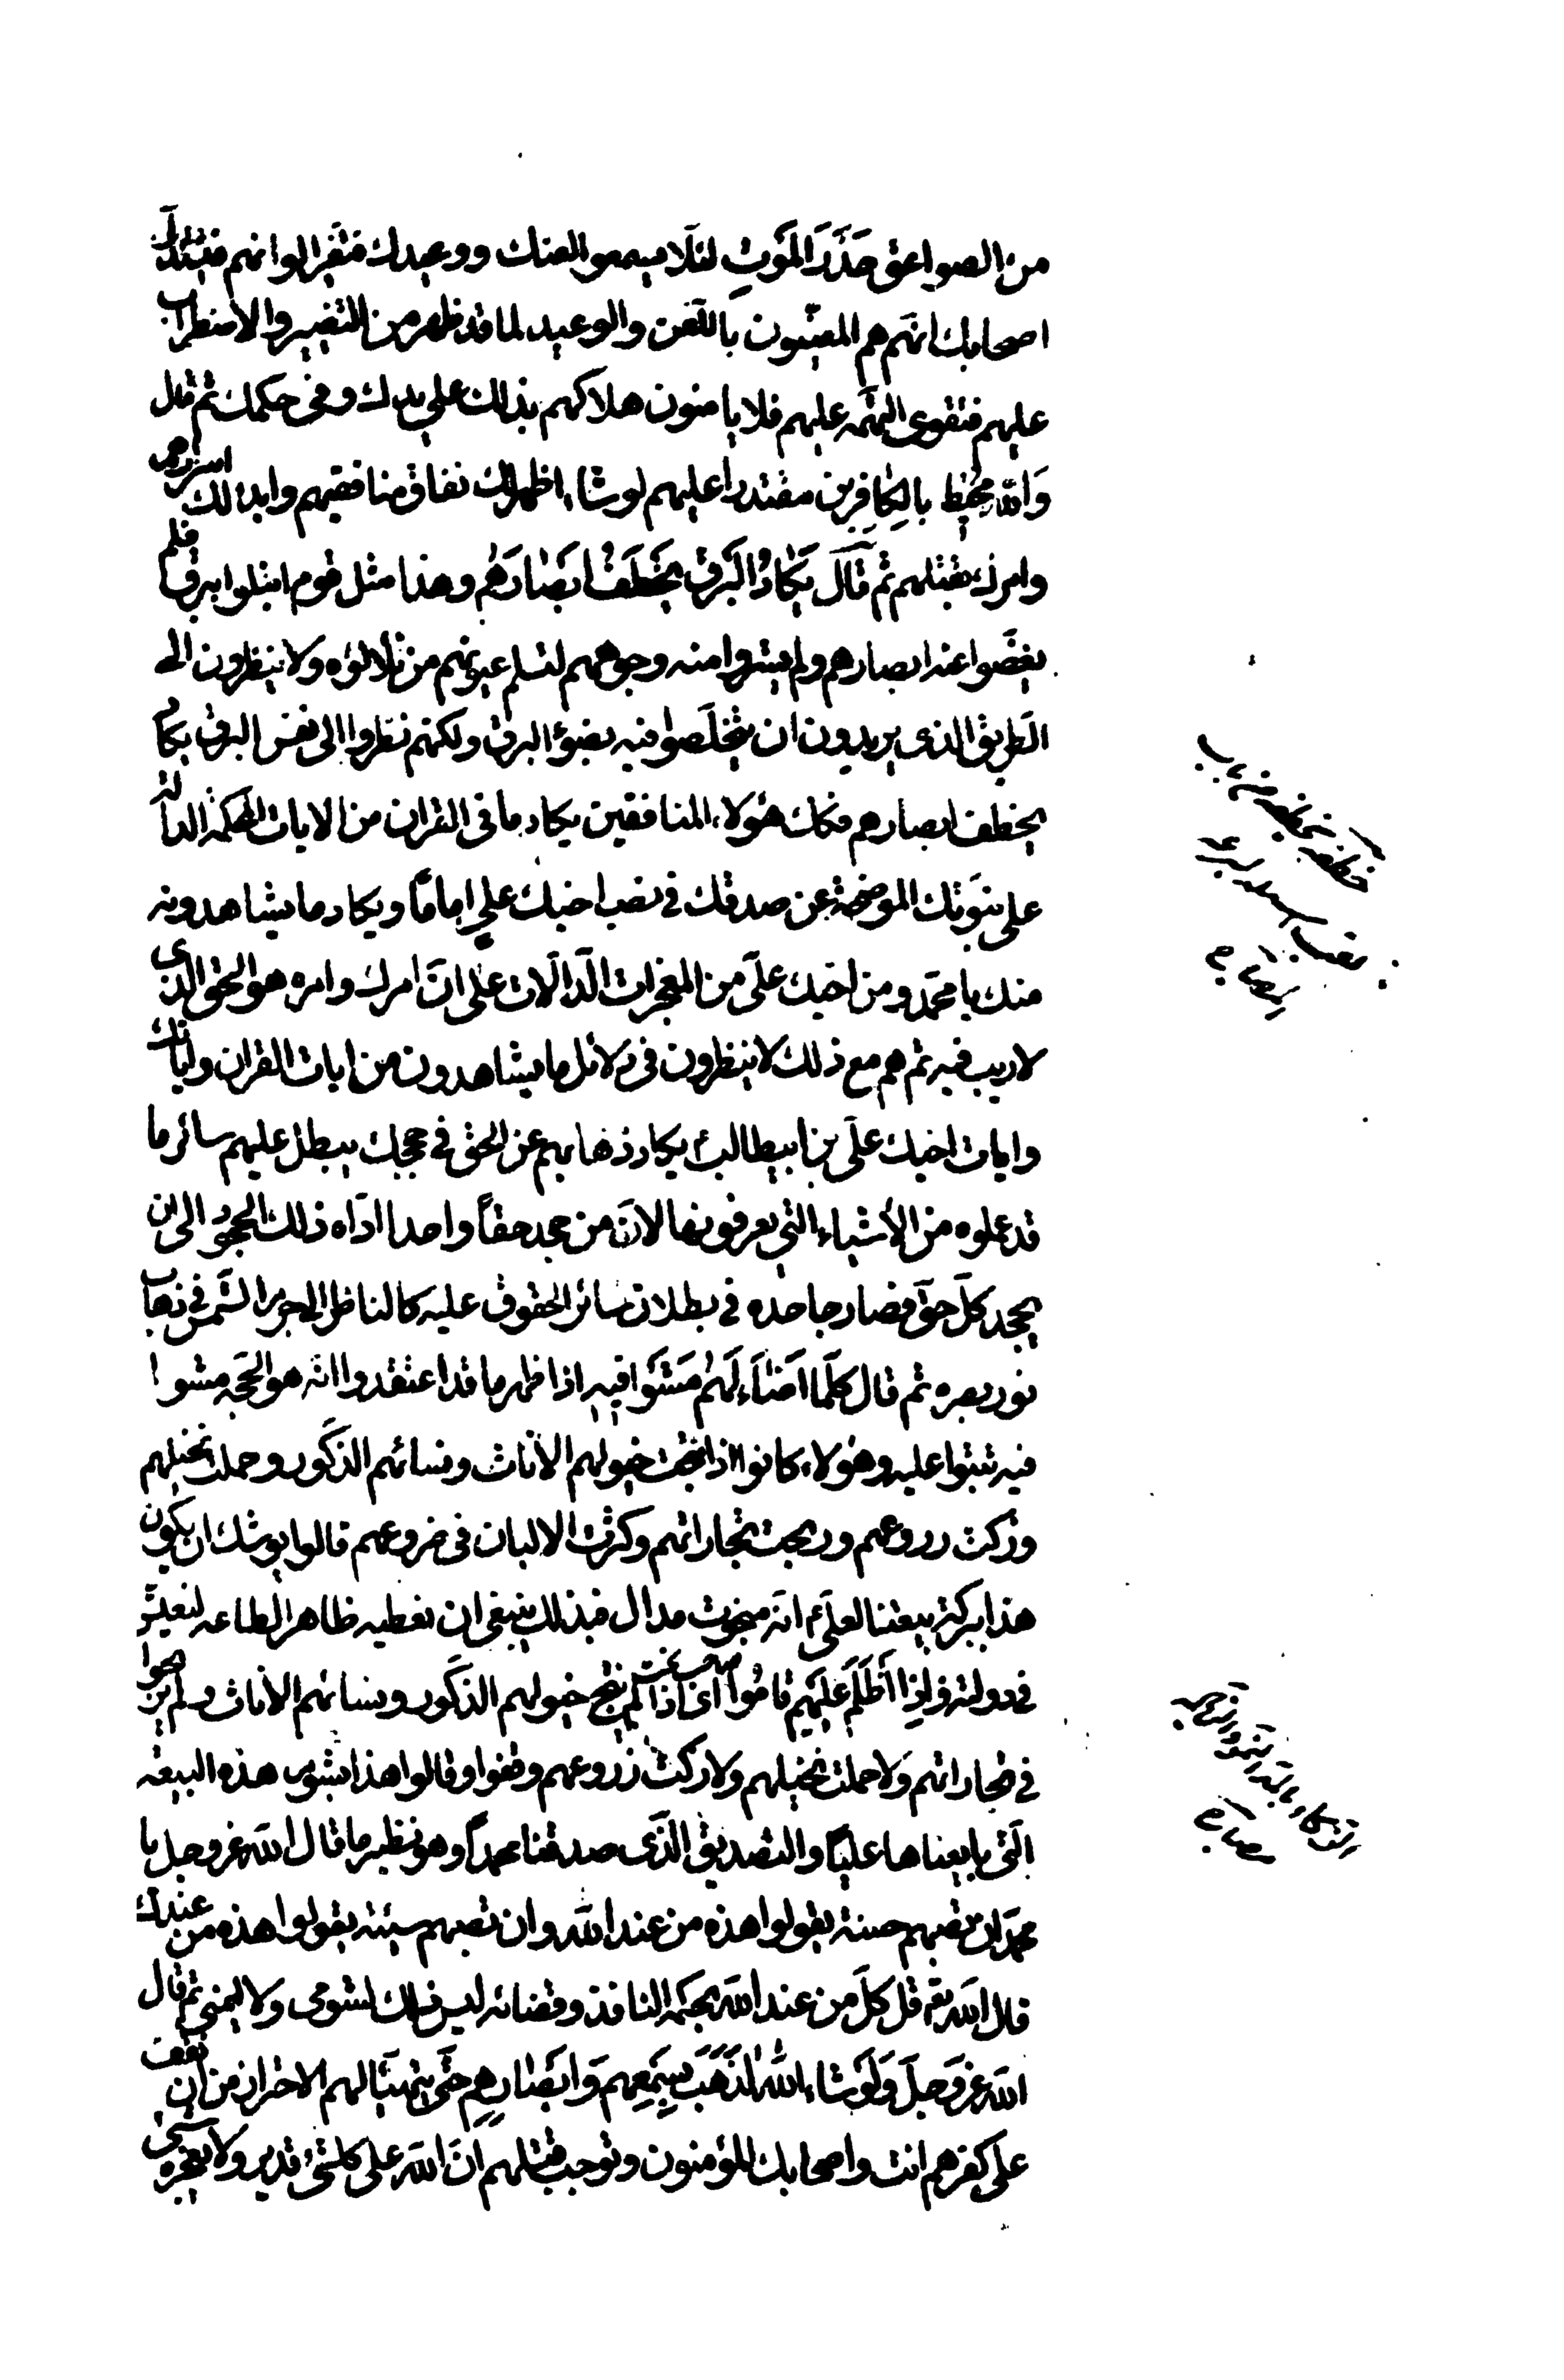 من الصواعق حَذَرَ المَوتِ لئلّا يسمعوا لعنك ووعيدك فتغيّر الوانهم فيستدلّ
اصحابك انّهم هم المعنيّون باللّعن والوعيد لما قد ظهر من التغيير والاضطراب
عليهم فتقوى التهمة عليهم فلا يامنون هلاكهم بذلك على يدك وفى حكمك ثم قال
وَاللّه مُحيط بالكافِرين مقتدر عليهم لو شاء اظهر لك نفاق منافقيهم وابدى لك اسرارهم
وامرك بقتلهم ثم قَالَ يَكادُ البَرقُ يَخطَفُ اَبصارَهُم وهذا مثل قوم ابتلوا ببرق فلم
يغضّوا عنه ابصارهم ولم يستروا منه وجوههم لتسلم عيونهم من تلالؤه ولا ينظرون الى
الطريق الذى يريدون ان يتخلّصوا فيه بضوء البرق ولكنهم نظروا الى نفس البرق يكاد
يخطف ابصارهم فكك هؤلاء المنافقين يكاد ما فى القران من الايات المحكمة الدالة
على نبوّتك الموضحة عن صدقك فى نصب اخيك علي اماما ويكاد ما يشاهدونه
منك يا محمّد ومن اخيك علىّ من المعجزات الدّالّات على انّ امرك وامره هو الحق الذى
لا ريب فيه ثم هم مع ذلك لا ينظرون فى دلائل ما يشاهدون من ايات القران واياتك
وايات اخيك علىّ بن ابيطالب يكاد ذهابهم عن الحق فى حججك يبطل عليهم سائر ما
قد عملوه من الأشياء التي يعرفونها لانّ من جحد حقاً واحدا ادّاه ذلك الجحود الى ان
يجحد كلّ حقّ فصار جاحده فى بطلان سائر الحقوق عليه كالناظر الى جرم الشّمس فى ذهاب
نور بصره ثم قال كلّما اَضاءَ لَهُم مَشَوا فيهِ اذا ظهر ما قد اعتقدوا انّه هو الحجّة مشوا
فيه ثبتوا عليه وهؤلاء كانوا اذا نتجت خيولهم الأناث ونسائهم الذكور وحملت نخيلهم
وزكت زروعهم وربحت تجاراتهم وكثرت الالبان فى ضروعهم قالوا يوشك ان يكون
هذا ببركة بيعتنا لعلىّ ع انّه مبخوت مدال فبذلك ينبغى ان نعطيه ظاهر الطاعه لنعيش
فى دولته وَاِذا اَظلَمَ عَلَيهِم قامُوا اى اذا لم ينتج خيولهم الذكور ونسائهم الأناث ولم يربحوا
فى تجاراتهم ولا حملت نخيلهم ولا زكت زروعهم وقفوا وقالوا هذا بشوم هذه البيعة
الّتى بايعناها عليّاً والتصديق الّذى صدقنا محمداً وهو نظير ما قال اللّه عز وجل يا
محمّد ان تصبهم حسنة يقولوا هذه من عند اللّه وان تصبهم سيئة يقولوا هذه من عندك
قال اللّه تع قل كلّ من عند اللّه بحكمه النافذ وقضائه ليس ذلك لشومى ولا ليمنى ثم قال
اللّه عزّ وَجلّ وَلَو شاءَ اللّهُ لَذَهَبَ بِسَمعِهِم وَاَبصارِهِم حتّى يتهيّأ لهم الاحتراز من ان تقف
على كفرهم انت واصحابك المؤمنون وتوجب قتلهم انّ اللّه على كلشئ قدير ولا يعجزه شئ